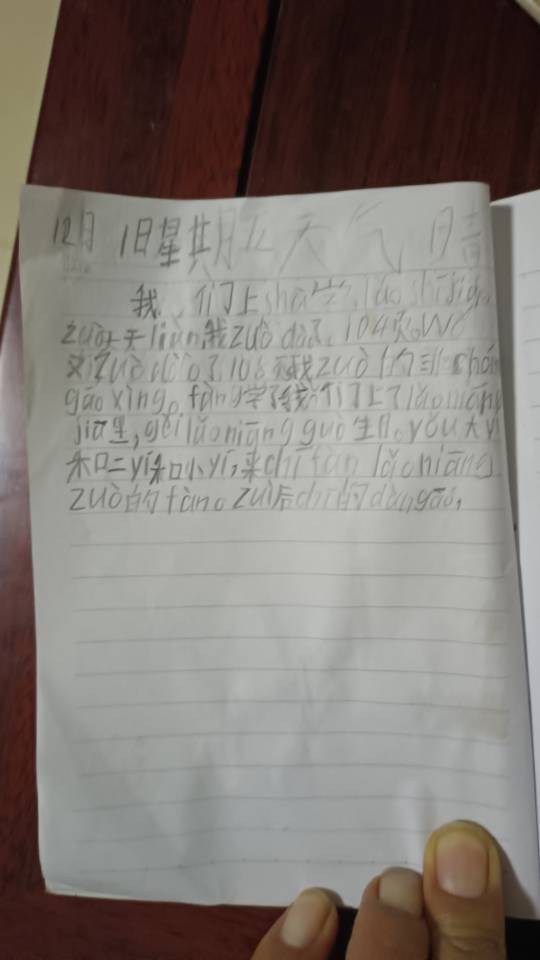 12月 1日星期五天气 晴
我们上shā学,lǎo shī
zuò 天 liàn,我zuò dào了104页。Wǒ
又zuò 了108页我zuò
gāo xìng。fàng学了我们上了lǎo niáng
jiā里,gěi lǎo niāng guò 生日。yǒu 大 yí
和二 yí和小 yí,来chī fàn lǎo niāng
zuò 的 fàn。zuì后 chī的 dàn gāo,